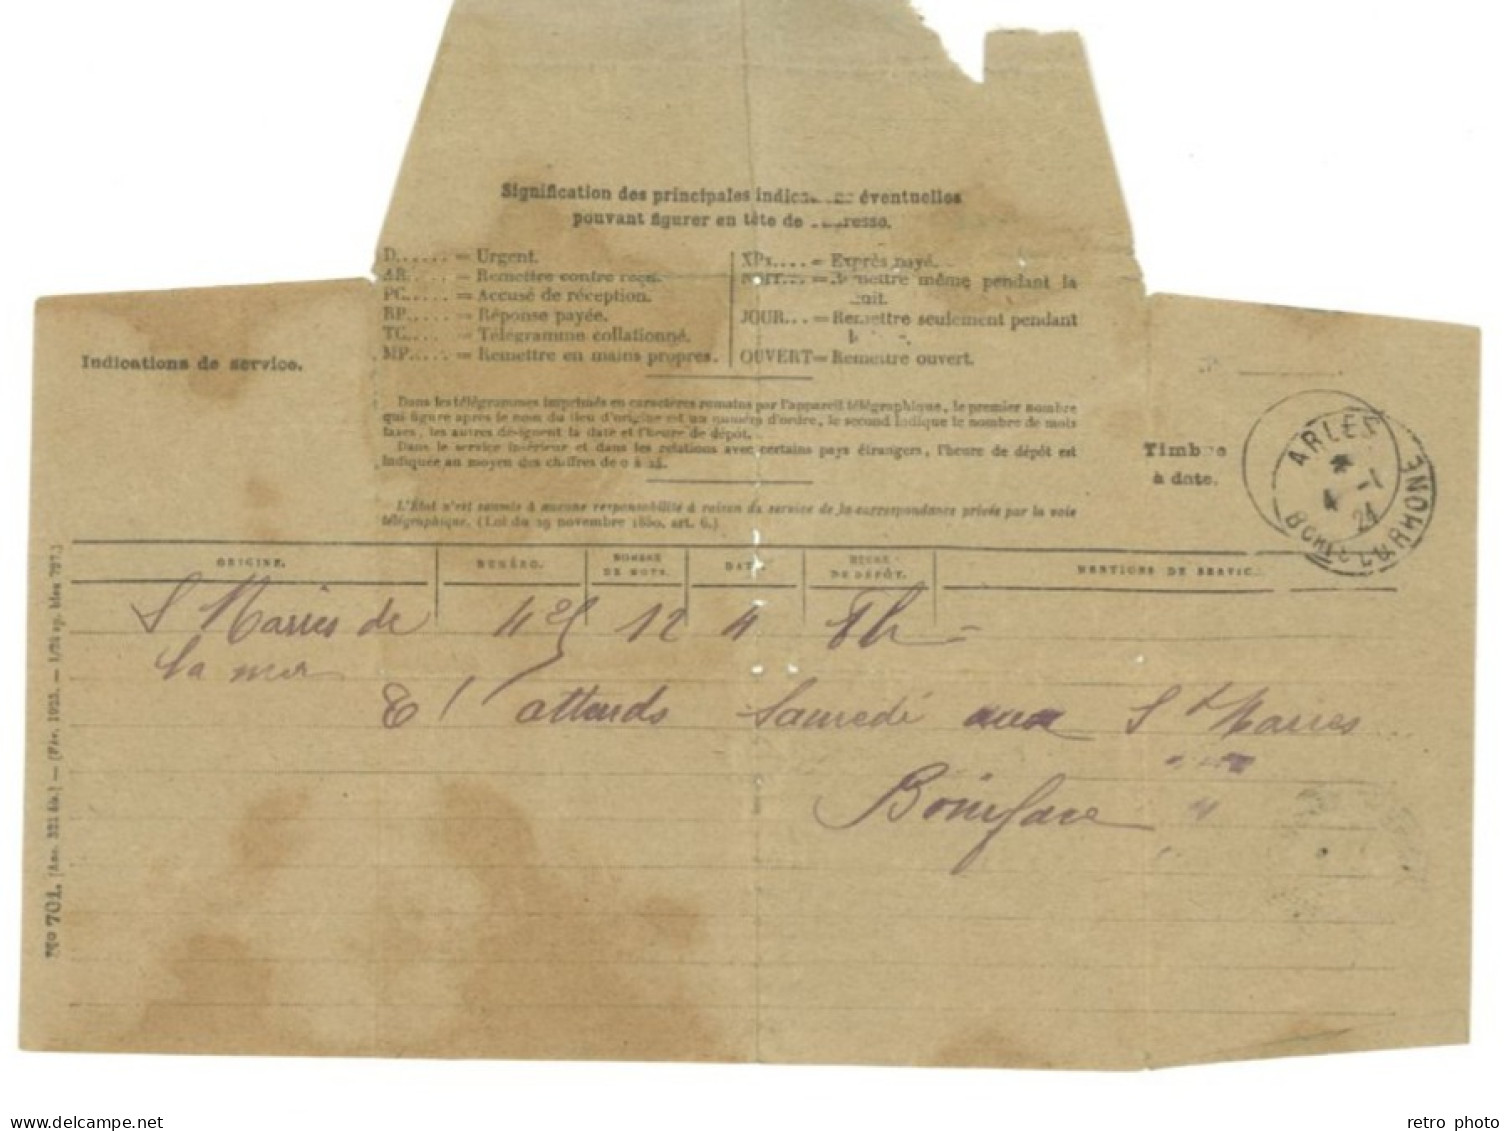 Signification des principales indications éventuelles
pouvant figurer en tête de l'adresse.
D...... = Urgent.
AR..... = Remettre contre reçu.
PC..... = Accusé de réception.
RP..... = Réponse payée.
TC..... = Télégramme collationné.
MP..... = Remettre en mains propres.
XPx.... = Exprès payé.
NUIT... = Remettre même pendant la
nuit.
JOUR... = Remettre seulement pendant
OUVERT = Remettre ouvert.
Indications de service.
Dans les télégrammes imprimés en caractères romains par l'appareil télégraphique, le premier nombre
qui figure après le nom du lieu d'origine est un numéro d'ordre, le second indique le nombre de mots
taxés, les autres désignent la date et l'heure de dépôt.
Dans le service intérieur et dans les relations avec certains pays étrangers, l'heure de dépôt est
indiquée au moyen des chiffres de 0 à 24.
Timbre
à date.
ARLES
4 -1
24
BCHES DU RHONE
L'État n'est soumis à aucune responsabilité à raison du service de la correspondance privée par la voie
télégraphique. (Loi du 29 novembre 1850, art. 6.)
ORIGINE. NUMÉRO. NOMBRE DE MOTS. DATE. HEURE DE DÉPÔT. MENTIONS DE SERVICE.
S Maries de 425 12 4 8h =
la mer
T'attends Samedi aux St Maries
Boniface
N° 701.
retro photo
www.delcampe.net